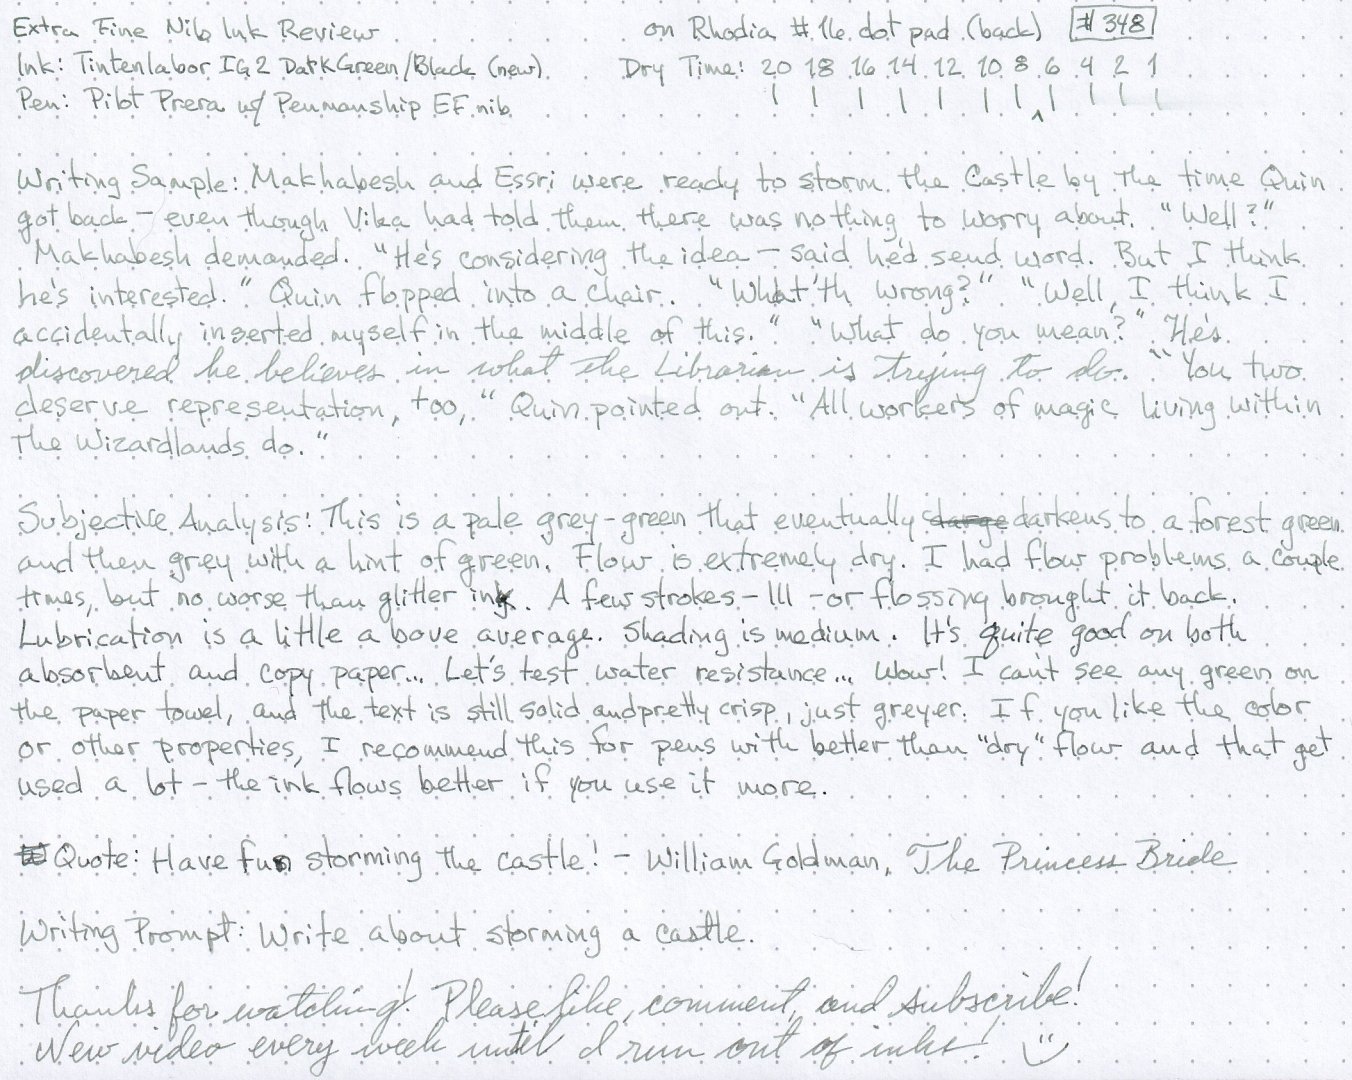 Extra Fine Nib Ink Review on Rhodia #16 dot pad (back) #348
Ink: Tintenlabor IG2 Dark Green/Black (new) Dry Time: 20 18 16 14 12 10 8 6 4 2 1
Pen: Pilot Prera w/ Penmanship EF nib
Writing Sample: Makhabesh and Essri were ready to storm the Castle by the time Quin
got back – even though Vika had told them there was nothing to worry about. "Well?"
Makhabesh demanded. "He's considering the idea – said he'd send word. But I think
he's interested." Quin flopped into a chair. "What'th wrong?" "Well, I think I
accidentally inserted myself in the middle of this." "What do you mean?" "He's
discovered he believes in what the Librarian is trying to do." "You two
deserve representation, too," Quin pointed out. "All workers of magic living within
the Wizardlands do."
Subjective Analysis: This is a pale grey-green that eventually darkens to a forest green
and then grey with a hint of green. Flow is extremely dry. I had flow problems a couple
times, but no worse than glitter ink. A few strokes – lll – or flossing brought it back.
Lubrication is a little above average. Shading is medium. It's quite good on both
absorbent and copy paper... Let's test water resistance... Wow! I can't see any green on
the paper towel, and the text is still solid and pretty crisp, just greyer. If you like the color
or other properties, I recommend this for pens with better than "dry" flow and that get
used a lot – the ink flows better if you use it more.
Quote: Have fun storming the castle! – William Goldman, The Princess Bride
Writing Prompt: Write about storming a castle.
Thanks for watching! Please like, comment, and subscribe!
New video every week until I run out of inks!